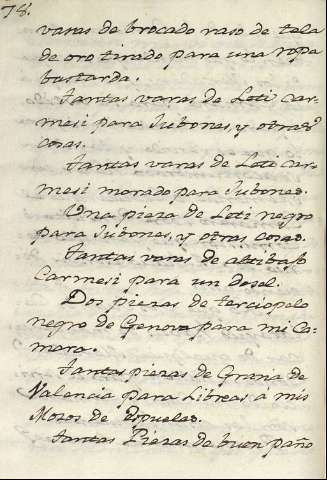 78.
varas de brocado raso de tela
de oro tirado para una ropa
bastarda.
Tantas varas de Loti car-
mesi para Jubones, y otras
cosas.
Tantas varas de Loti car-
mesi morado para Jubones.
Una pieza de Loti negro
para Jubones, y otras cosas.
Tantas varas de altibajo
Carmesi para un dosel.
Dos piezas de terciopelo
negro de Genova para mi Ca-
mara.
Tantas piezas de Grana de
Valencia para Libreas a mis
Mozos de Espuelas.
Tantas Piezas de buen paño